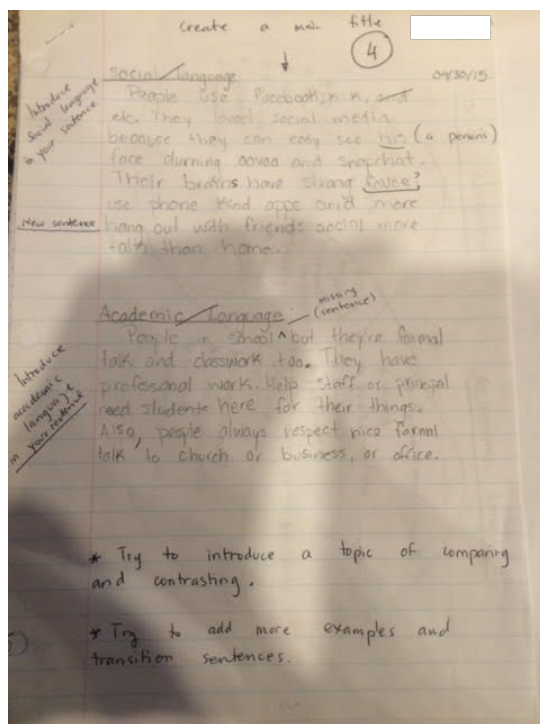 create a main title
4
Social/language
04/30/15
Introduce
Social language
in your sentence
People use facebook, kik, and
etc. They loved social media
because they can easy see his (a persons)
face durning oovoo and snapchat.
Their brains have strong
use phone kind apps and more
New sentence
hang out with friends social more
talk than home.
Academic/Language
missing
(sentence)
People in school ^ but they're formal
talk and classwork too. They have
Introduce
academic
language
in your sentence
professonal work. Help staff or principal
need students here for their things.
Also, people always respect nice formal
talk to church or business, or office.
* Try to introduce a topic of comparing
and contrasting.
* Try to add more examples and
transition sentences.